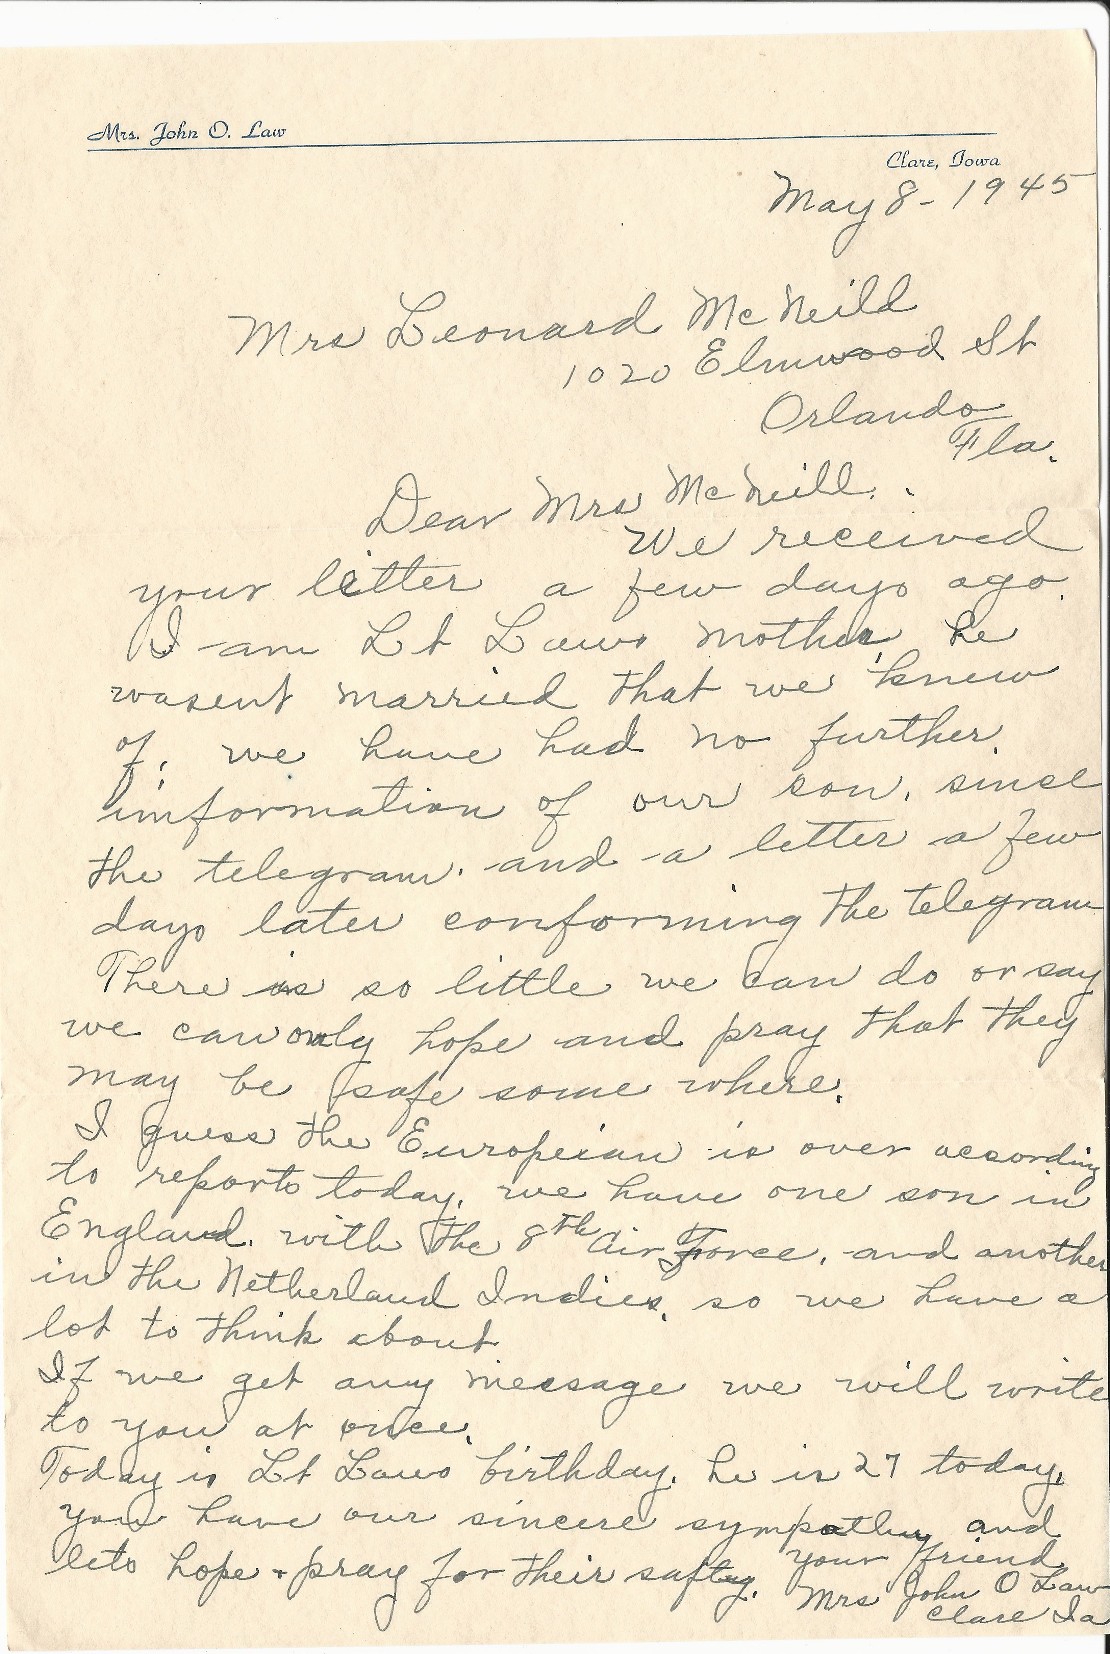 Mrs. John O. Law
Clare, Iowa
May 8 - 1945
Mrs Leonard McNeild
1020 Elmwood St
Orlando
Fla.
Dear Mrs McNeill.
We received
your letter a few days ago.
I am Lt Laws mother, he
wasent married that we knew
of; we have had no further
imformation of our son, since
the telegram. and a letter a few
days later comforming the telegram
There is so little we can do or say
we can only hope and pray that they
may be safe some where.
I guess the Europeian is over according
to reports today. we have one son in
England. with the 8th Air Force, and another
in the Netherland Indies, so we have a
lot to think about
If we get any message we will write
to you at once.
Today is Lt Laws birthday. he is 27 today,
you have our sincere sympathy and
lets hope + pray for their safty. your friend
Mrs John O Law
Clare Ia